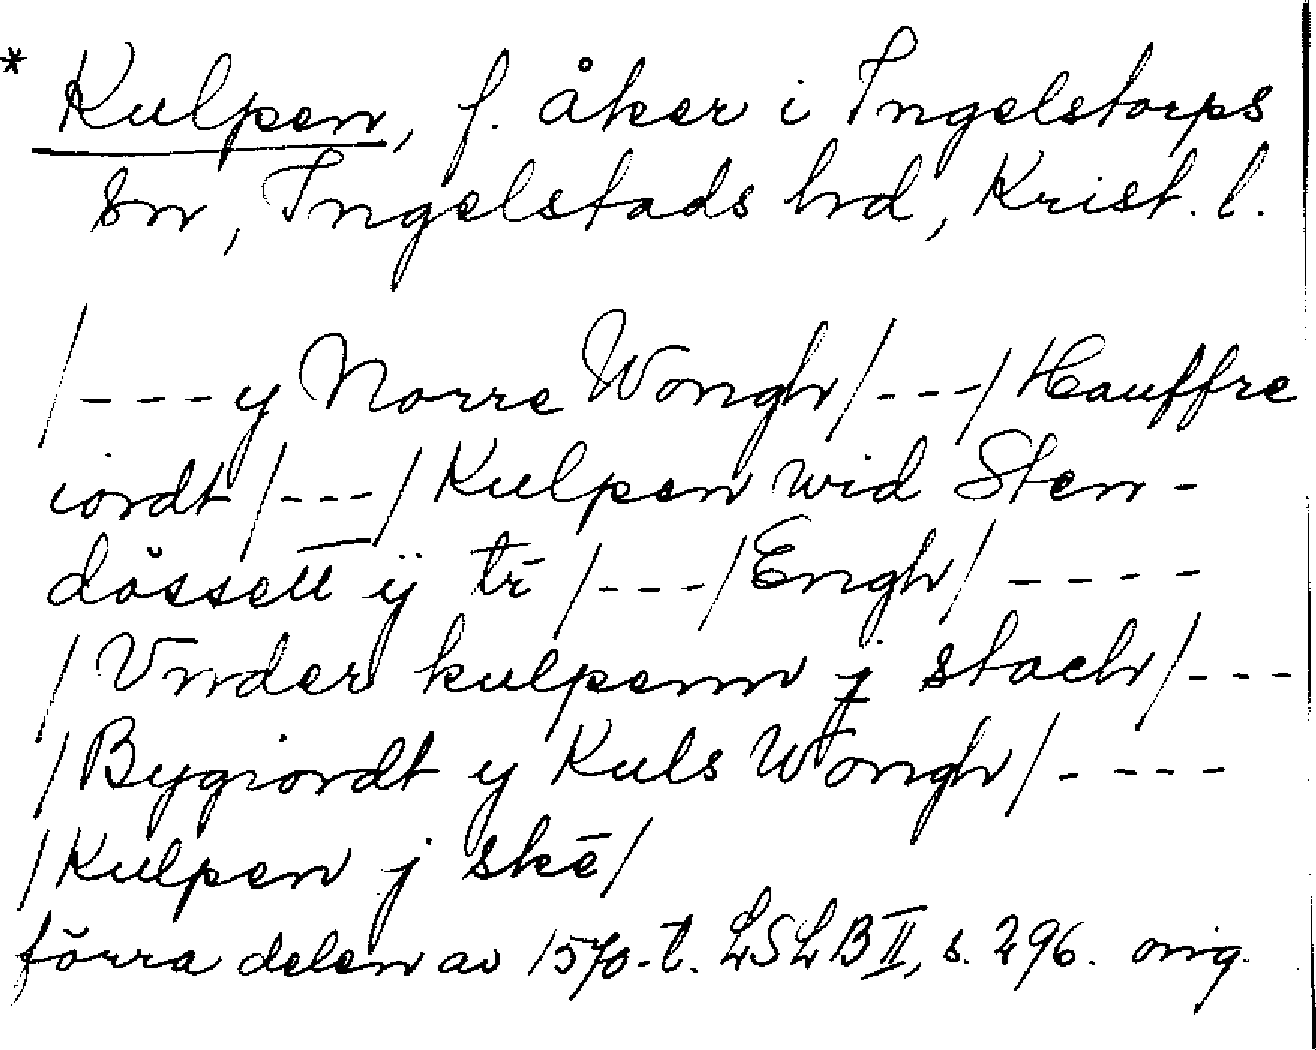 * Kulpen, f. åker i Ingelstorps
sn, Ingelstads hrd, Krist. l.
/---y Norre Wongh/---/Hauffre
iordt/---/Kulpen wid Sten-
dössett ÿ tr̄ /---/Engh/----
/Vnder kulpenn j stach/---
/Bygiordt y Kuls Wongh/----
/Kulpen j skē/
förra delen av 1570-t. LSLB II, s. 296. orig.